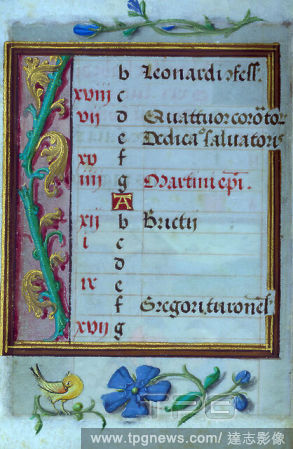 b Leonardi ꝯfess.
xviij c
vij d Quattuor coro͞tor
e Dedica͞ saluatoris
xv f
iiij g Martini ep͞i.
A
xij b Brictij
i c
d
ix e
f Gregorij turonen͞s
xvij g
TPG
www.tpgnews.com / 達志影像